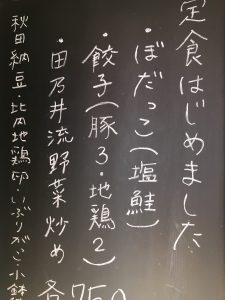 定食はじめました
・ぼだっこ(塩鮭)
・餃子(豚3・地鶏2)
・田乃井流野菜炒め
各750
秋田納豆・比内地鶏卵・いぶりがっこ小鉢